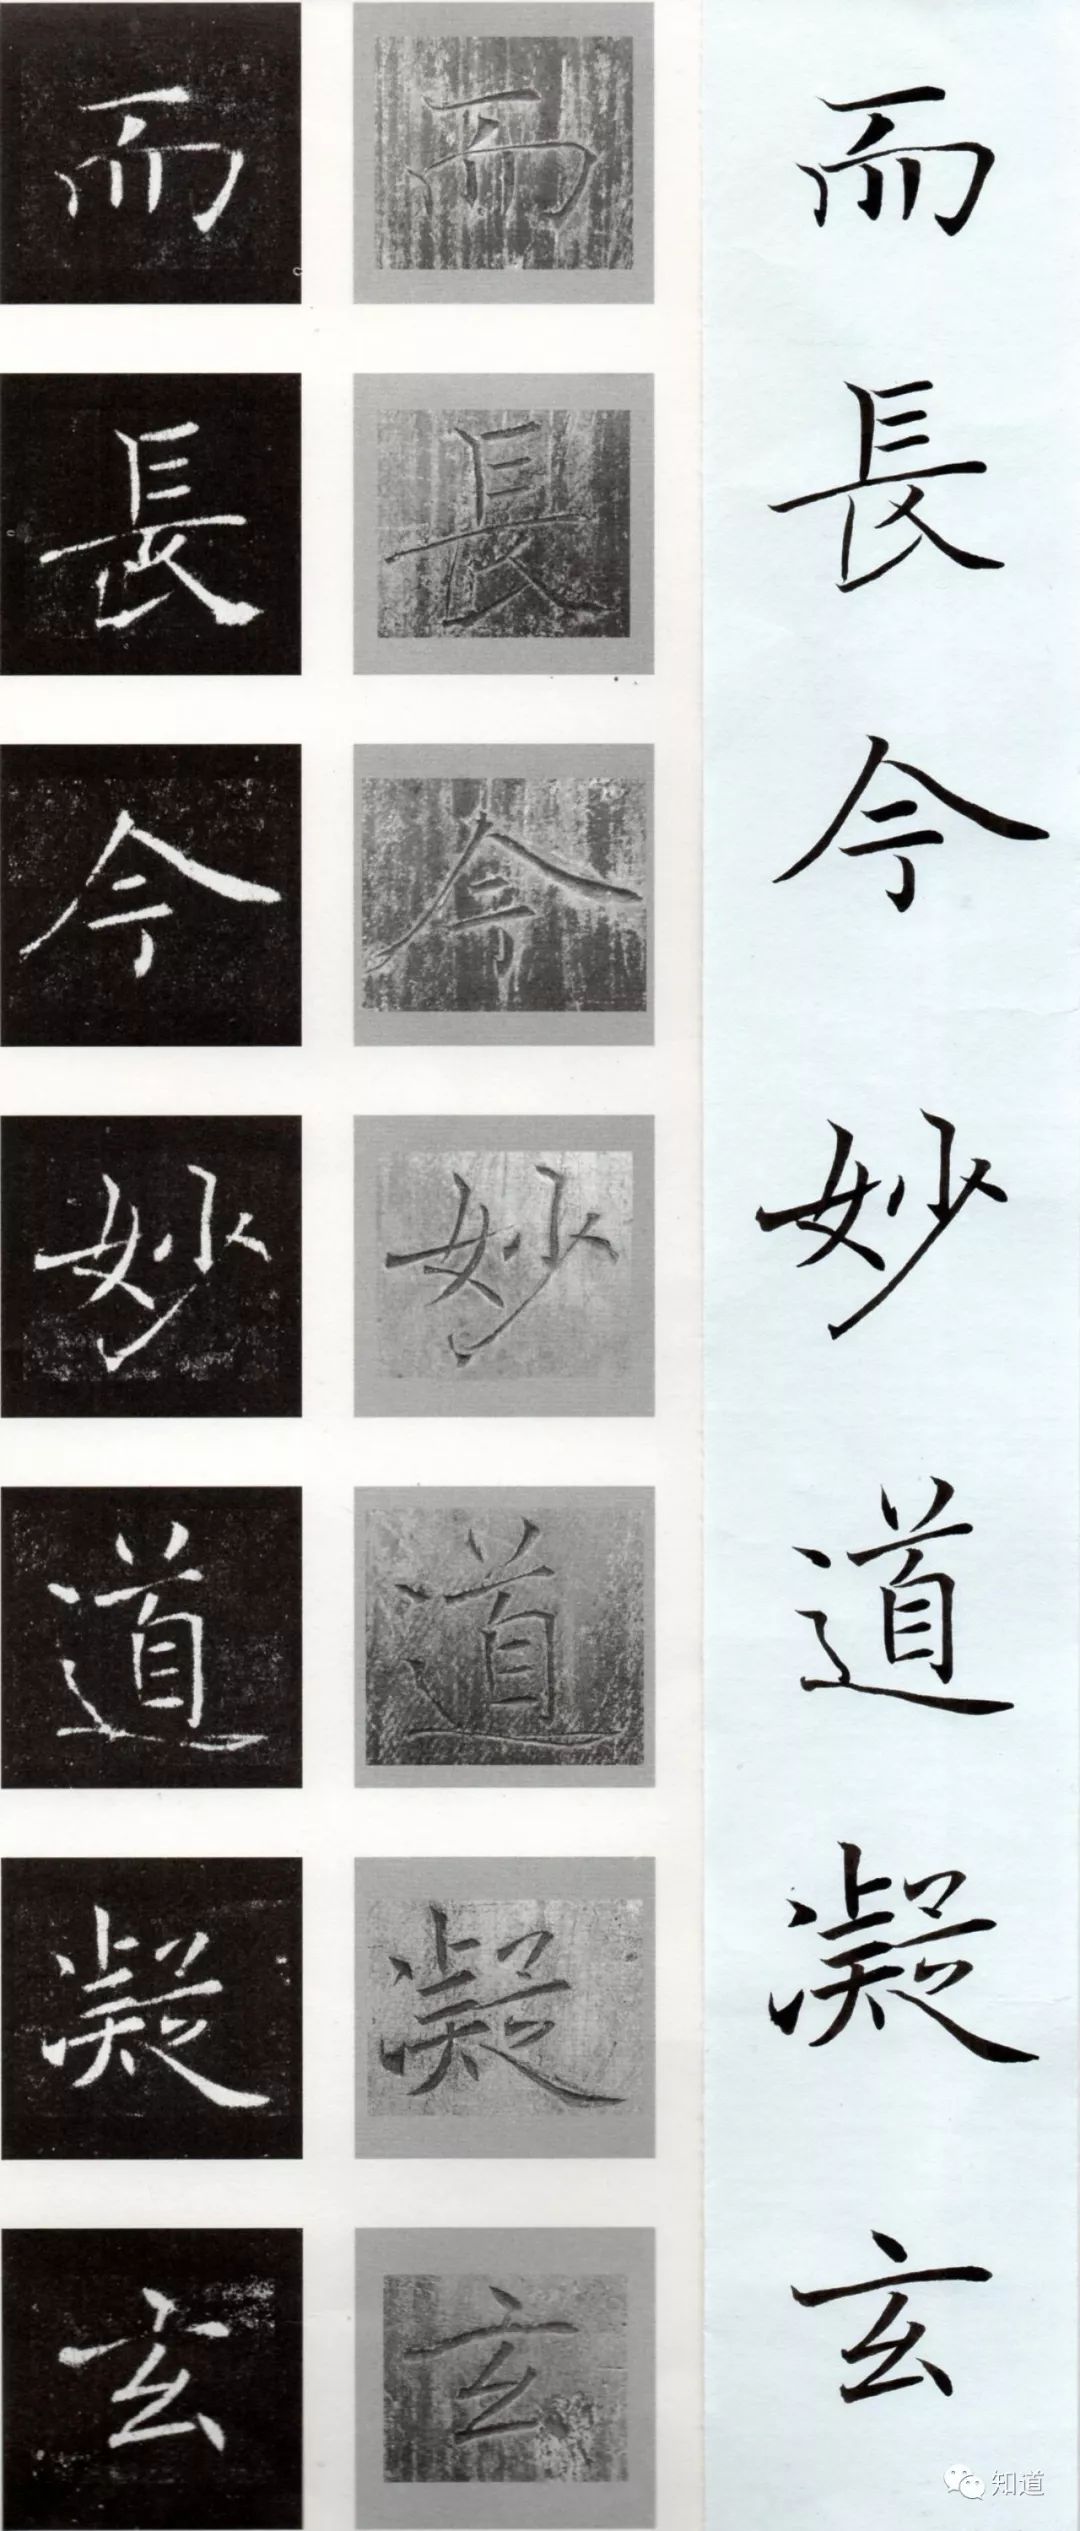 而長今妙道凝玄
而長今妙道凝玄
而長今妙道凝玄
知道